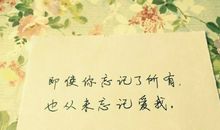 即使你忘记了所有，
也从来忘记爱我。